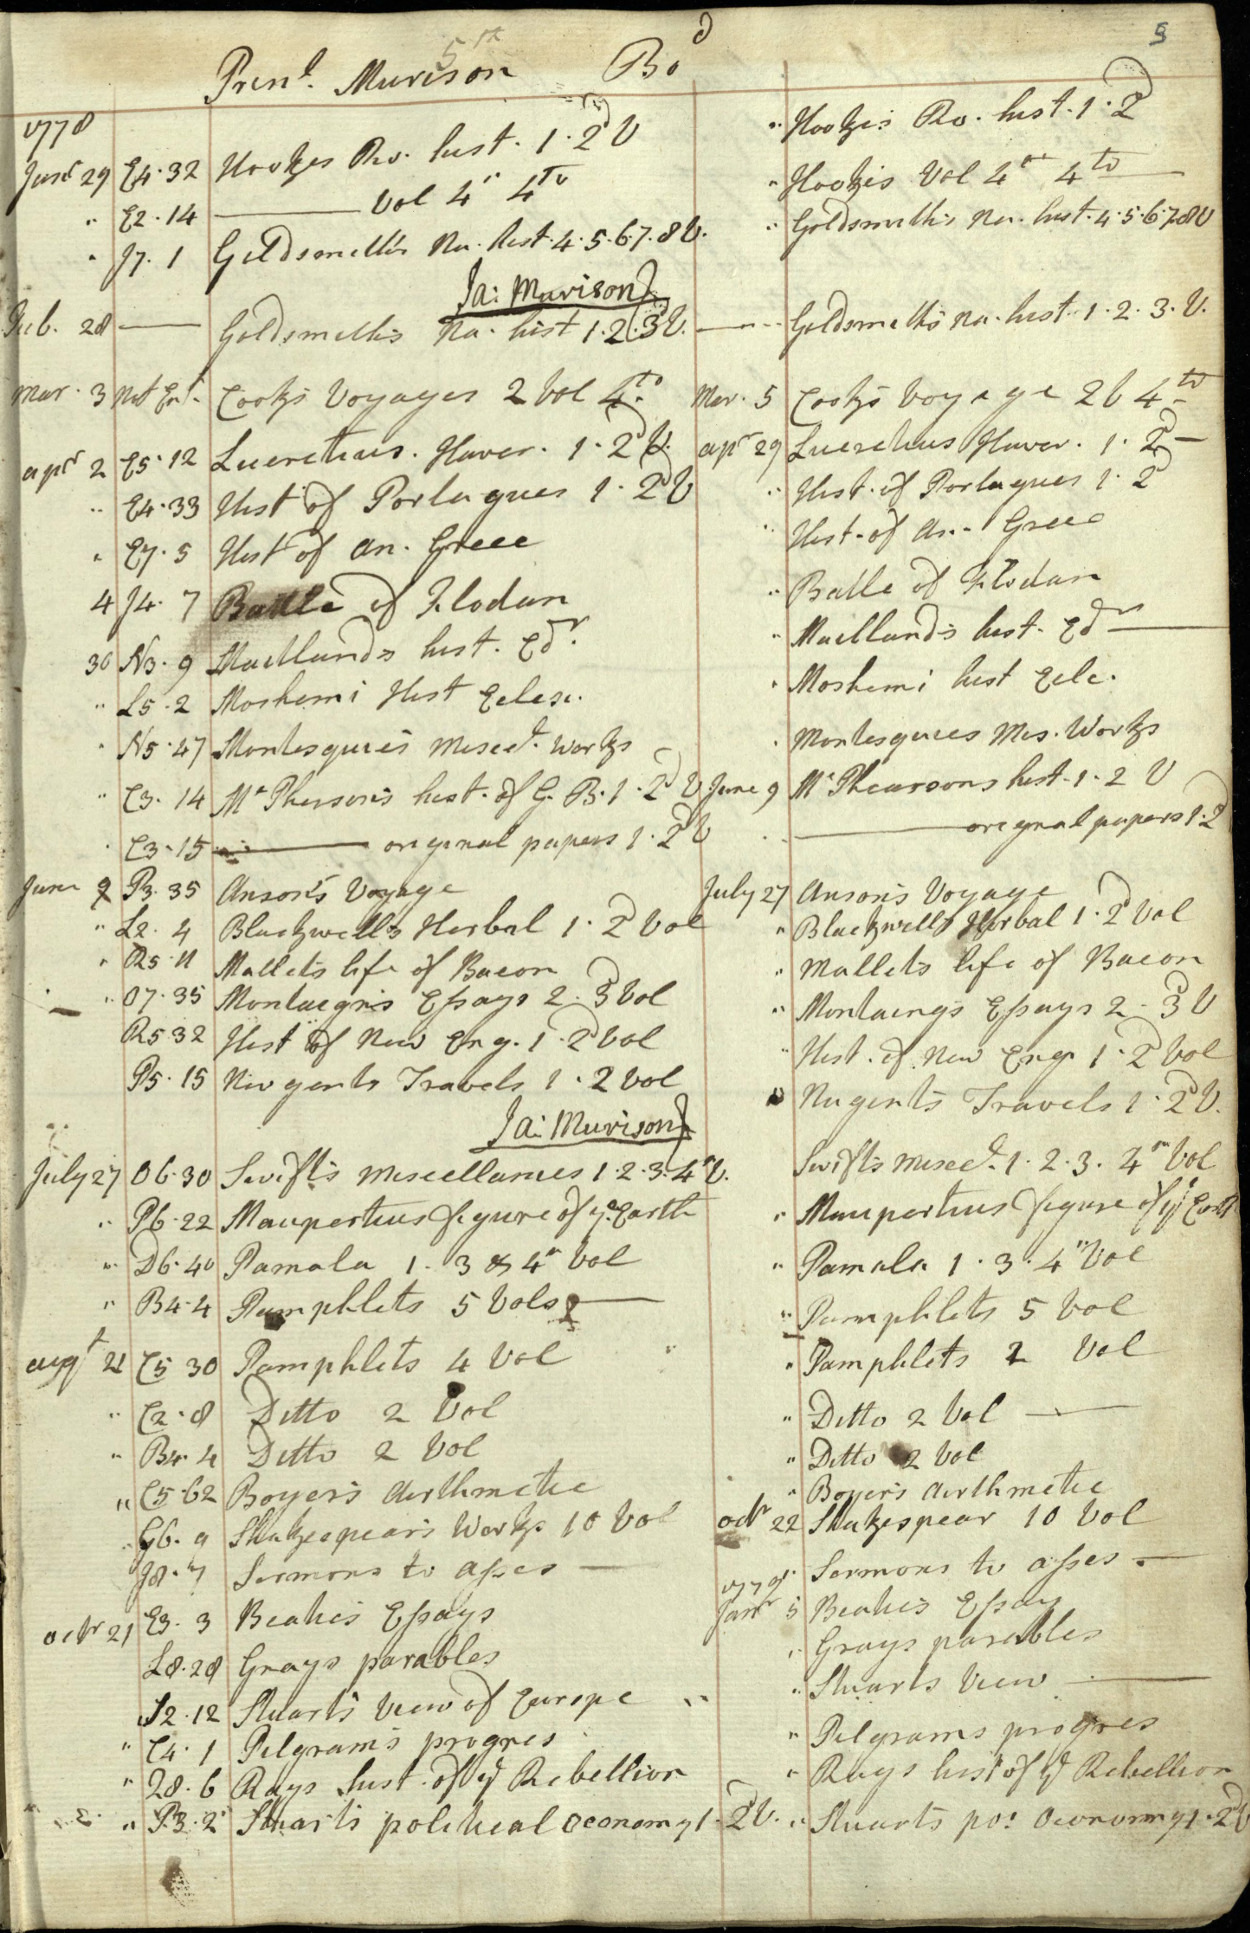 5
5th
Prinl. Murison Bod
1778
Janr 29 E4.32 Hookes Ro. hist. 1.2d V .. Hookes Ro. hist. 1.2d
" E2.14 ——— Vol 4th 4to " Hookes Vol 4th 4to —
" J7.1 Goldsmith's Na. hist. 4.5.6.7.8 V. " Goldsmith's Na. hist. 4.5.6.7.8 V
Ja: Murison
Feb. 28 — Goldsmith's Na. hist 1.2.3d V. — Goldsmith's Na. hist. 1.2.3.V.
Mar. 3 Not Ent. Cooks Voyages 2 Vol 4to. Mar. 5 Cooks Voyage 2 V 4to
apr 2 E5.12 Lucretius. Haver. 1.2d V. apr 29 Lucretius Haver. 1.2d —
" E4.33 Hist of Portugues 1.2d V " Hist. of Portugues 1.2d
" E7.5 Hist of An. Greec " Hist. of An. Greec
4 J4.7 Battle of Flodan " Batle of Flodan
30 N3.9 Maitlands hist. Edr. " Maitlands hist. Edr —
" L5.2 Moshemi Hist Ecless. " Moshemi hist Ecle.
" N5.47 Montesquieis Miscel. Works " Montesquies Mis. Works
" E3.14 Mc Pherson's hist. of G. B. 1.2d V June 9 Mc Phearsons hist. 1.2 V
" E3.15 ——— original papers 1.2d V " ——— original papers 1.2d
June 9 P3.35 Anson's Voyage July 27 Anson's Voyage
" L2.4 Blackwell's Herbal 1.2d Vol " Blackwell's Herbal 1.2d Vol
" R5.11 Mallets life of Bacon " Mallets life of Bacon
" O7.35 Montaigns Essays 2.3d Vol " Montaings Essays 2.3d V
R5 32 Hist of New Eng. 1.2d Vol " Hist. of New Eng. 1.2d Vol
P5.15 Nugents Travels 1.2 Vol " Nugents Travels 1.2d V.
Ja: Murison
July 27 O6.30 Swift's Miscellanies 1.2.3.4th V. Swift's Miscel. 1.2.3.4th Vol
" P6.22 Maupertius figure of ye Earth " Maupertius figure of ye Earth
" D6.40 Pamala 1.3 & 4th Vol " Pamala 1.3.4th Vol
" B4.4 Pamphlets 5 Vols — " Pamphlets 5 Vol
augt 21 C5 30 Pamphlets 4 Vol " Pamphlets 2 Vol
" C2.8 Ditto 2 Vol " Ditto 2 Vol —
" B4.4 Ditto 2 Vol " Ditto 2 Vol
" C5.62 Boyer's Airthmetic " Boyer's Airthmetic
" G6.9 Shakespear's Works 10 Vol octr 22 Shakespear 10 Vol
J8.7 Sermons to asses — Sermons to asses —
1779
octr 21 E3.3 Beatie's Essays Janr 5 Beatie's Essay
L8.28 Grays parables " Grays parables
S2.12 Stuarts View of Europe " Stuarts View —
" C4.1 Pilgram's progres " Pilgrams progres
" Q8.6 Rays hist. of ye Rebellion " Rays hist of ye Rebellion
" P3.2 Stuarts political Oeconomy 1.2d V. " Stuarts po: Oeconomy 1.2d V